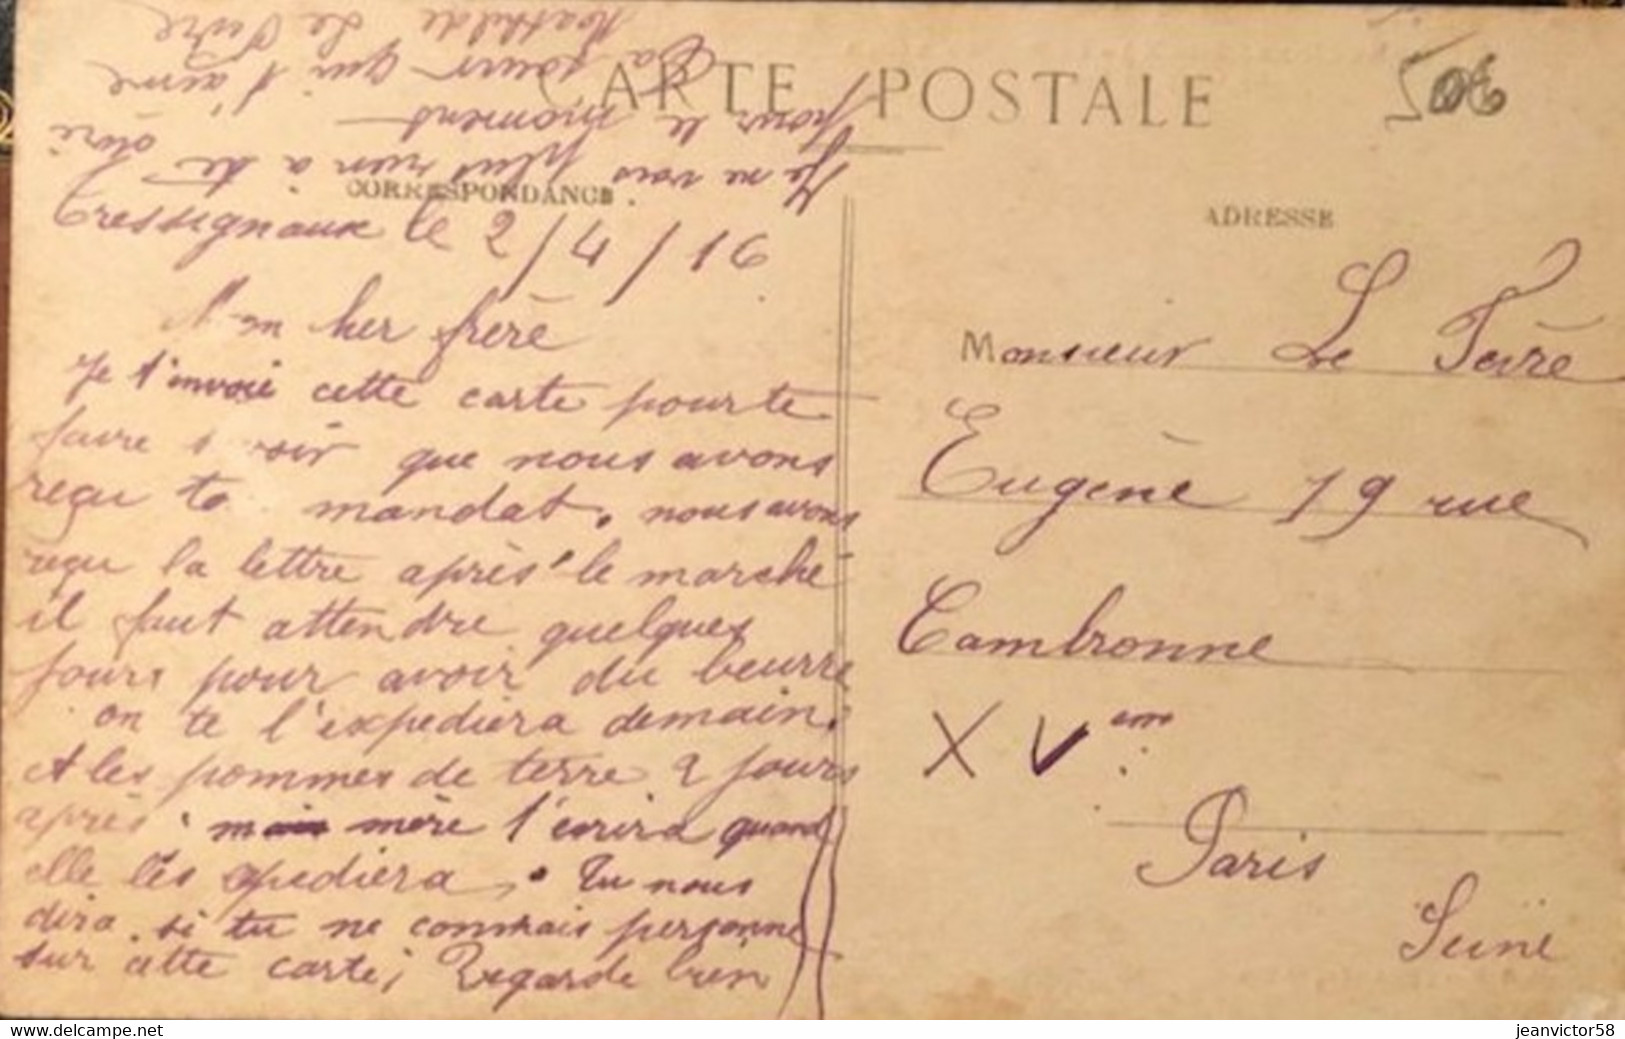 CARTE POSTALE
CORRESPONDANCE.
Tressignaux le 2/4/16
Mon her frère
Je t'envoie cette carte pour te
faire s voir que nous avons
reçu to mandat. nous avons
reçu la lettre après le marché
il faut attendre quelques
jours pour avoir du beurre
on te l'expediera demain.
et les pommes de terre 2 jours
après. mère t'écrira quand
elle les epediera. Tu nous
dira si tu ne connais personne
sur cette carte; Regarde bien
Je ne vois plus rien a te dire
pour le moment
Ta soeur qui t'aime
Mathilde Le Fèvre
ADRESSE
Monsieur Le Fèvre
Eugène 79 rue
Cambronne
XVeme
Paris
Seine
www.delcampe.net
jeanvictor58